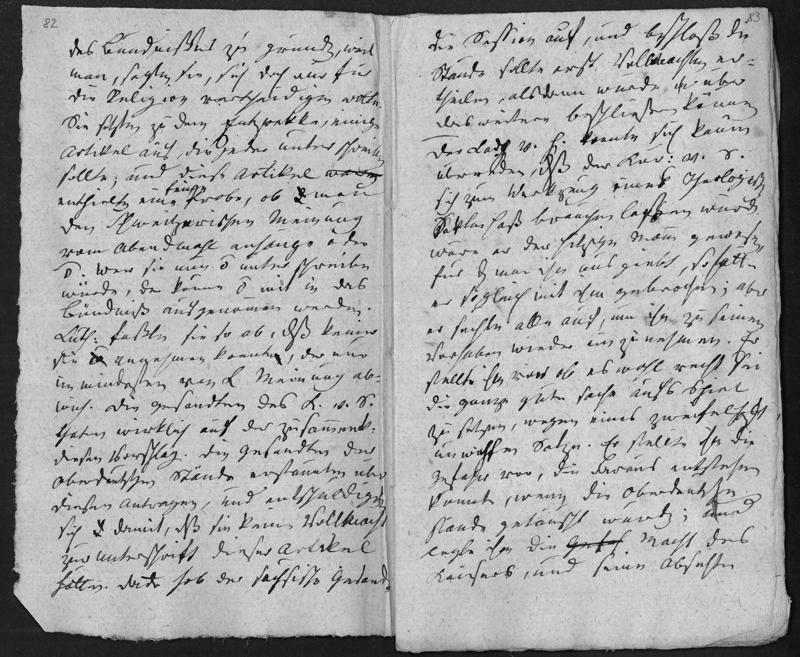 82
des Bündnißes zu grunde, weil
man, sagten sie, sich doch nur für
die Religion vertheidigen wolle.
Sie sezten zu dem Entzwekke, einige
Artikel auf, die jeder unterschreiben
sollte; und diese Artikel
enthielten eine Probe, ob man
den Schweitzerischen Meinung
vom Abendmahl anhänge oder
wer sie nun unterschreiben
würde, der könne mit in das
Bündniß aufgenommen werden.
Luth: faßten sie so ab, daß keiner
sie annehmen konnte, der nur
im mindesten von L. Meinung ab-
wich. Die gesandten des K. v. S.
thaten wirklich auf der zusammenk:
diesen Vorschlag. Die Gesandten der
Oberdeutschen Stände erstaunten über
diesen Antragen, und entschuldigten
sich damit, daß sie keine Vollmacht
zur Unterschrift dieser Artikel
hätten. hob der sächsische Gesand
83
die Session auf, und beschloß die
Stände sollten erst Vollmachten er-
theilen, alsdann würde über
das weitere beschließen können
Der Ldg. v. H. konnte sich kaum
überreden, daß der Kur: v. S.
sich zum Werkzeug eines Theologischen
Sektenhaß brauchen lassen würde
wäre er der hitzige Mann gewesen
für den man ihn ausgiebt, so hätte
er sogleich mit ihm gebrochen; aber
er suchte alles auf, um ihn zu seinem
Vorhaben wieder einzunehmen. Er
stellte ihm vor ob es wohl recht sei
die ganze gute Sache aufs Spiel
zu setzen, wegen eines zweifelhaft
Satzes. Er stellte ihm die
Gefahr vor, die daraus entstehen
könnte, wenn die Oberdeutschen
Stände getäuscht würden; und
legte ihm die Macht des
Kaisers, und seine Absichten